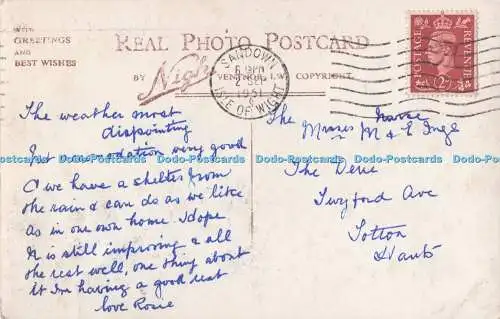 WITH
GREETINGS
AND
BEST WISHES
REAL PHOTO POSTCARD
BY Nigh VENTNOR, I.W. COPYRIGHT.
SANDOWN
ISLE OF WIGHT
1951
POSTAGE
REVENUE
The weather most
dispointing
very good
& we have a shelter from
the rain & can do as we like
as in our own home I hope
is still improving & all
the rest well, one thing about
it Im having a good rest
love Rosie
The Misses M & E Inge
The Dene
Twyford Ave
Totton
Hants
Dodo-Postcards Dodo-Postcards Dodo-Postcards Dodo-Postcards Dodo-Postcards